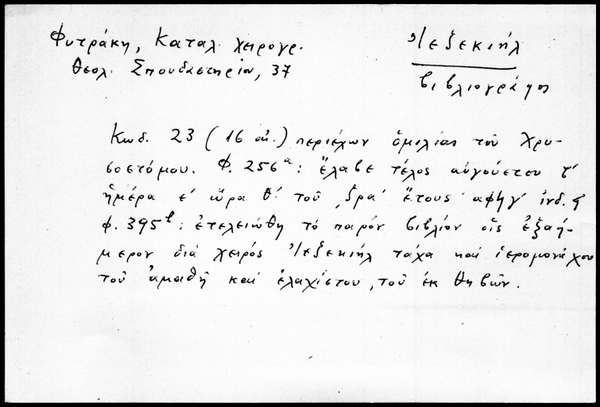 Φυτράκη, Καταλ. χειρογρ.
Θεολ. Σπουδαστηρίου, 37
Ἰεζεκιήλ
βιβλιογράφος
Κωδ. 23 (16 αἰ.) περιέχων ὁμιλίας τοῦ Χρυ-
σοστόμου. Φ. 256ᵃ: ἔλαβε τέλος αὐγούστου
ἡμέρα ε' ὥρα θ' τοῦ ͵ζρα' ἔτους αφϟγ' ἰνδ. ϛ
φ. 395ᵇ: ἐτελειώθη τὸ παρόν βιβλίον εἰς ἑξαή-
μερον διά χειρός Ἰεζεκιήλ τάχα καί ἱερομονάχου
τοῦ ἀμαθῆ καί ἐλαχίστου, τοῦ ἐκ Θηβῶν.